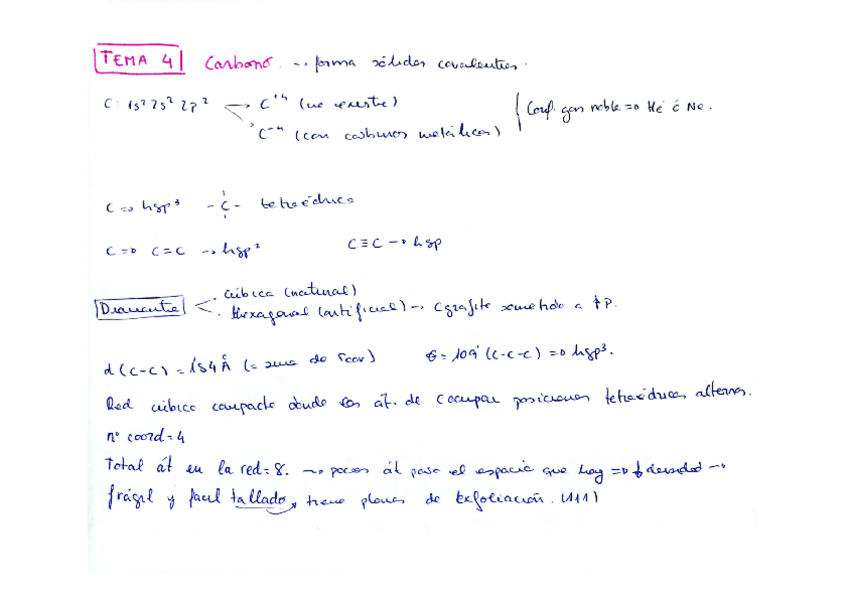 TEMA 4 Carbono. → forma sólidos covalentes.
C: 1s² 2s² 2p² → C⁺⁴ (no existe)
C⁻⁴ (con carburos metálicos)
Conf. gas noble ⇒ He ó Ne.
C ⇒ hsp³ -C- tetraédrico
C ⇒ C=C → hsp² C≡C → hsp
Diamante
. cúbica (natural)
. Hexagonal (artificial) → Cgrafito sometido a ↑P.
d(C-C) = 1'54 Å (= suma de rcov) θ = 109° (C-C-C) ⇒ hsp³.
Red cúbica compacta donde los át. de C ocupan posiciones tetraédricas alternas.
nº coord = 4
Total át en la red = 8. → pocos át para el espacio que hay ⇒ densidad →
frágil y facil tallado, tiene planos de exfoliación. (111)